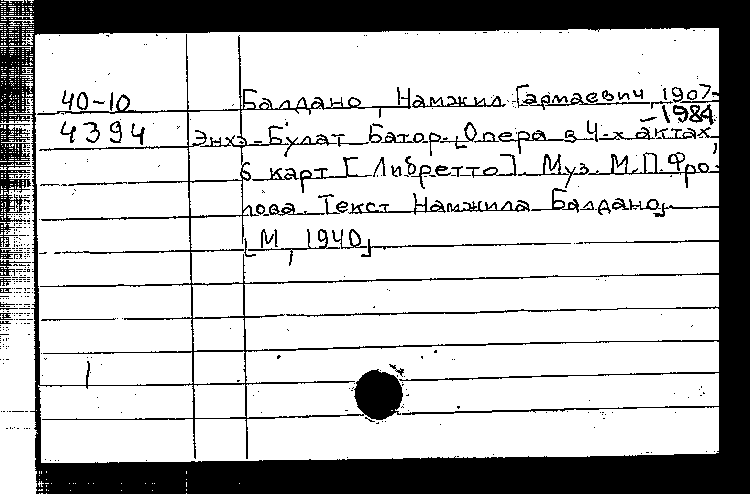 40-10 Балдано, Намжил Гармаевич, 1907-
-1984
4394 Энхэ-Булат Батор. [Опера в 4-х актах,
6 карт [Либретто]. Муз. М.П. Фро-
лова. Текст Намжила Балдано].
[М, 1940]